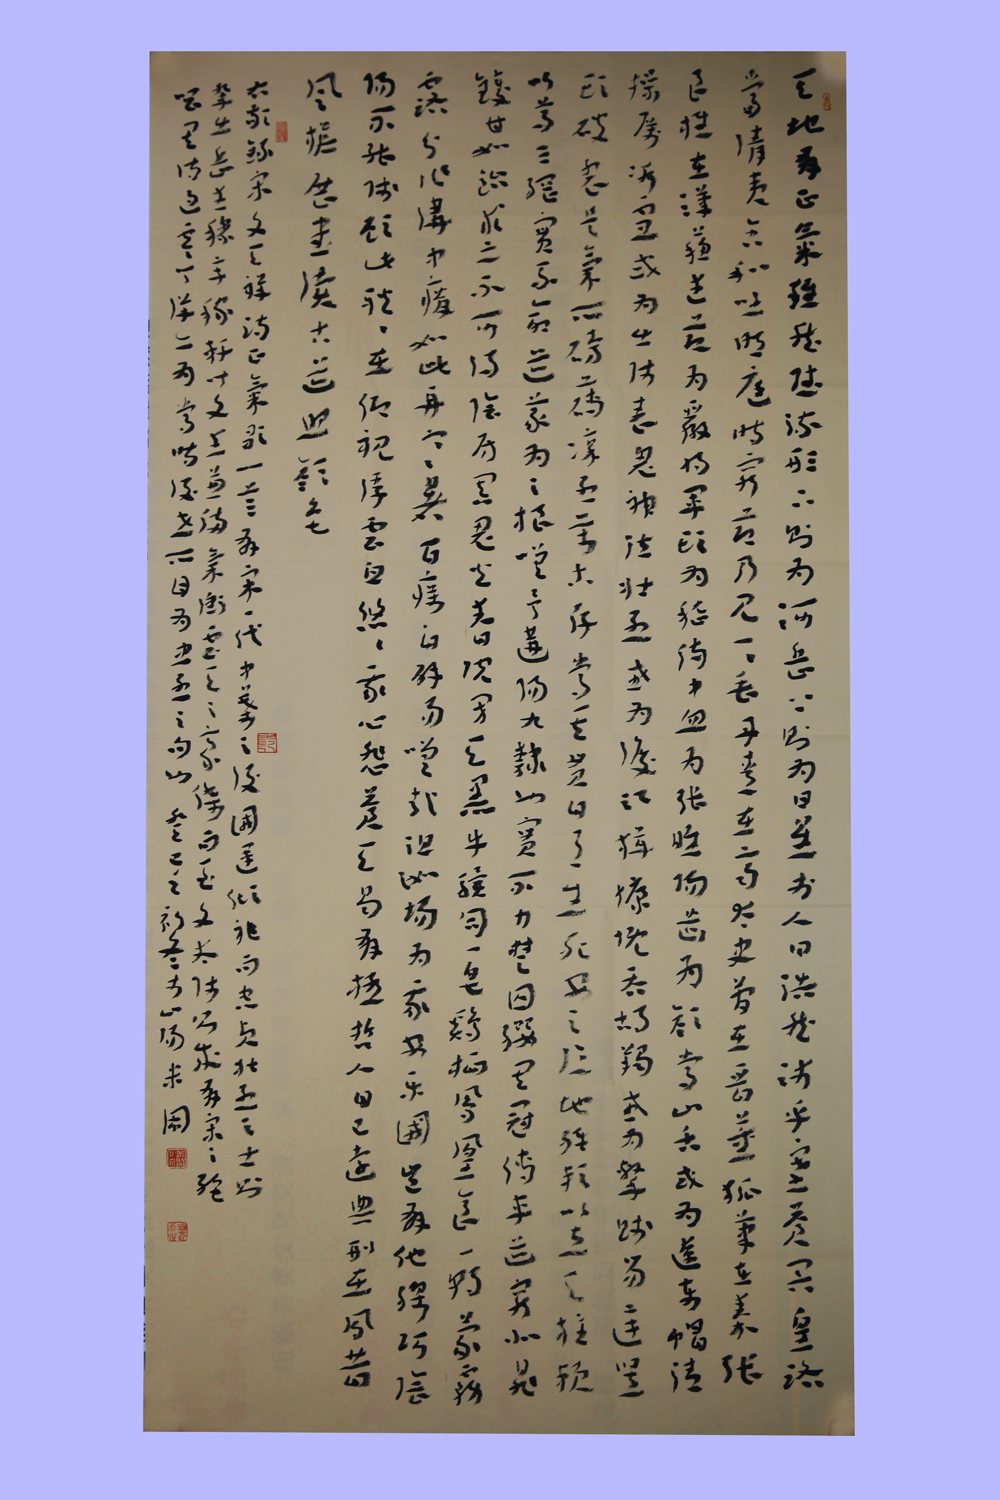 天地有正氣雜然賦流形下則為河岳上則為日星於人曰浩然沛乎塞蒼冥皇路
當清夷含和吐明庭時窮節乃見一一垂丹青在齊太史簡在晉董狐筆在秦張
良椎在漢蘇武節為嚴將軍頭為嵇侍中血為張睢陽齒為顏常山舌或為遼東帽清
操厲冰雪或為出師表鬼神泣壯烈或為渡江楫慷慨吞胡羯或為擊賊笏逆豎
頭破裂是氣所磅礴凜烈萬古存當其貫日月生死安足論地維賴以立天柱賴
以尊三綱實系命道義為之根嗟予遘陽九隸也實不力楚囚纓其冠傳車送窮北鼎
鑊甘如飴求之不可得陰房闃鬼火春院閟天黑牛驥同一皂雞棲鳳凰食一朝蒙霧
露分作溝中瘠如此再寒暑百癘自辟易嗟哉沮洳場為我安樂國豈有他繆巧陰
陽不能賊顧此耿耿在仰視浮雲白悠悠我心悲蒼天曷有極哲人日已遠典刑在夙昔
風檐展書讀古道照顏色
右敬錄宋文天祥詩正氣歌一首有宋一代中葉之後國運傾而忠貞壯烈之士則
輩出岳武穆辛稼軒文氣衝雲天之豪傑而至文太師公有宋之絕
唱其詩過零丁洋亦為後世所目為忠烈之句也癸巳之初冬于山陽朱